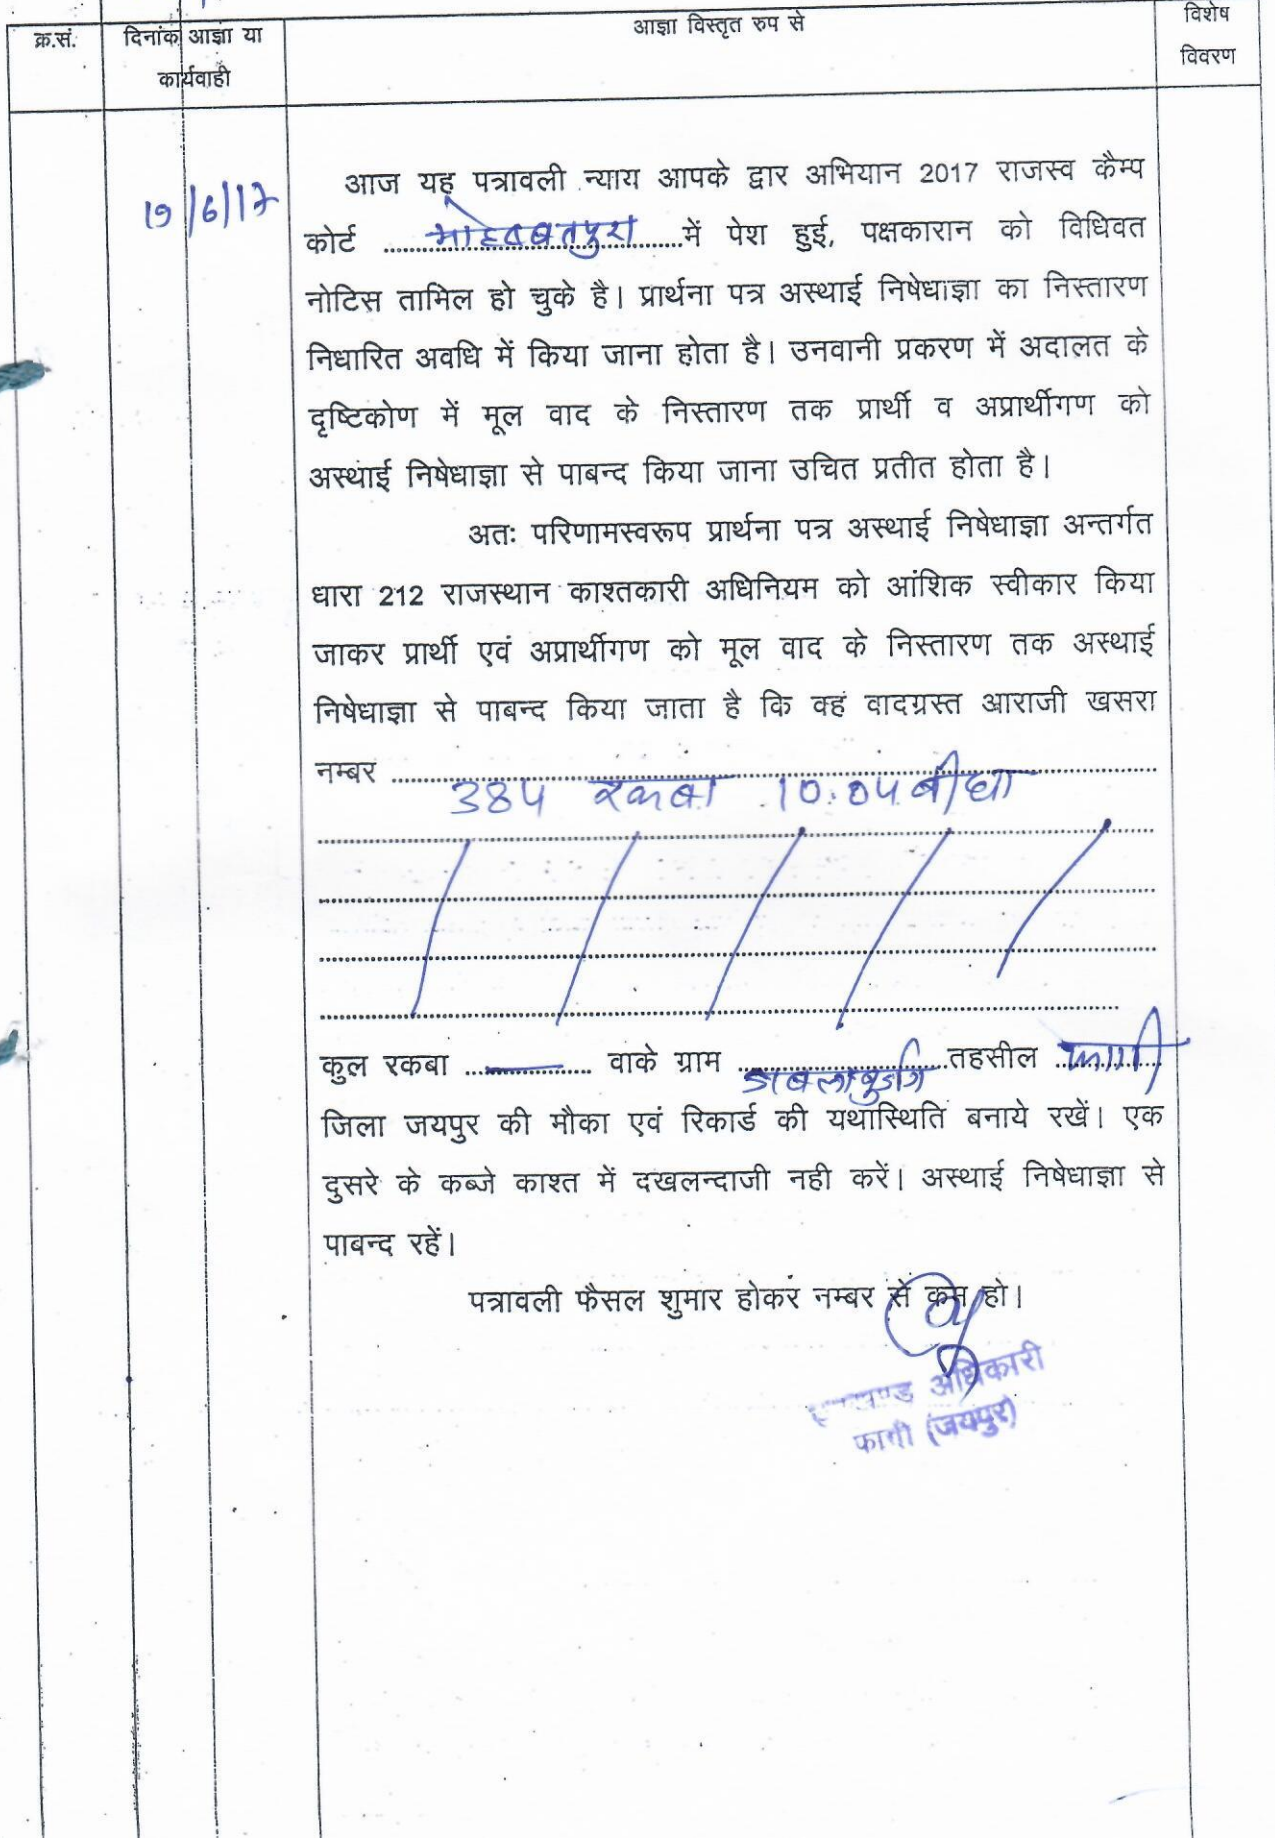 क्र.सं. दिनांक आज्ञा या आज्ञा विस्तृत रुप से विशेष
कार्यवाही विवरण
19/6/17
आज यह पत्रावली न्याय आपके द्वार अभियान 2017 राजस्व कैम्प
कोर्ट ....मोहब्बतपुरा....में पेश हुई, पक्षकारान को विधिवत
नोटिस तामिल हो चुके है। प्रार्थना पत्र अस्थाई निषेधाज्ञा का निस्तारण
निधारित अवधि में किया जाना होता है। उनवानी प्रकरण में अदालत के
दृष्टिकोण में मूल वाद के निस्तारण तक प्रार्थी व अप्रार्थीगण को
अस्थाई निषेधाज्ञा से पाबन्द किया जाना उचित प्रतीत होता है।
अतः परिणामस्वरूप प्रार्थना पत्र अस्थाई निषेधाज्ञा अन्तर्गत
धारा 212 राजस्थान काश्तकारी अधिनियम को आंशिक स्वीकार किया
जाकर प्रार्थी एवं अप्रार्थीगण को मूल वाद के निस्तारण तक अस्थाई
निषेधाज्ञा से पाबन्द किया जाता है कि वह वादग्रस्त आराजी खसरा
नम्बर ....
384 रकबा 10.04 बीघा
कुल रकबा ........ वाके ग्राम ........तहसील ..फागी..
जिला जयपुर की मौका एवं रिकार्ड की यथास्थिति बनाये रखें। एक
दुसरे के कब्जे काश्त में दखलन्दाजी नही करें। अस्थाई निषेधाज्ञा से
पाबन्द रहें।
पत्रावली फैसल शुमार होकर नम्बर से कम हो।
उपखण्ड अधिकारी
फागी (जयपुर)